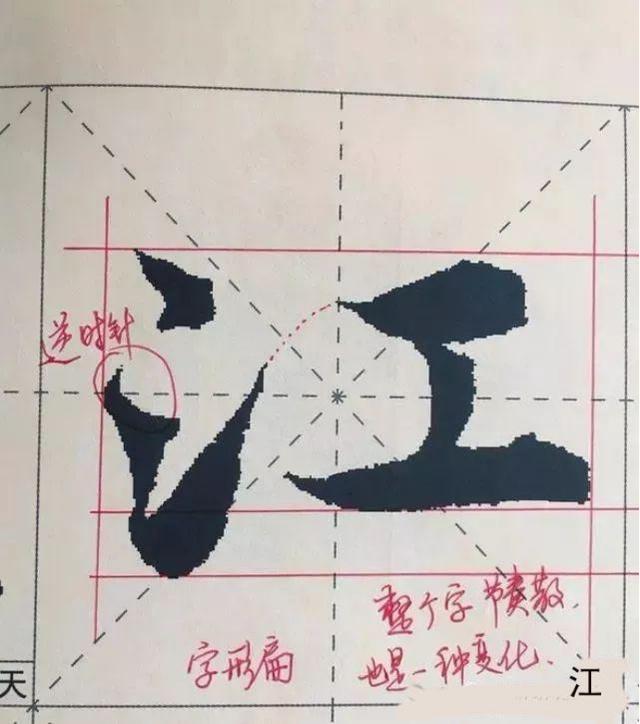 江
逆时针
整个字节奏散,
也是一种变化.
字形扁
天
江